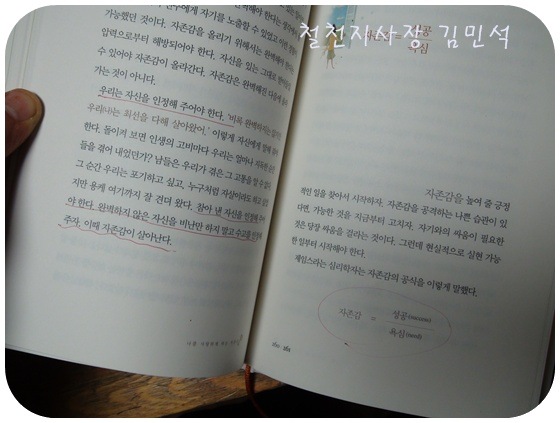 가능했던 것이다. 자존감을 올리기 위해서는 완벽해야 한다는
압력으로부터 해방되어야 한다. 자신을 있는 그대로
수 있어야 자존감이 올라간다. 자존감은 완벽해진 다음에
가는 것이 아니다.
우리는 자신을 인정해 주어야 한다. '비록 완벽하지는
우리(나)는 최선을 다해 살아왔어.' 이렇게 자신에게 말해
한다. 돌이켜 보면 인생의 고비마다 우리는 얼마나
들을 겪어 내었던가? 남들은 우리가 겪은 그 고통을 알 수
그 순간 우리는 포기하고 싶고, 누구처럼 자살이라도 하고
지만 용케 여기까지 잘 견뎌 왔다. 참아 낸 자신을 인정해
야 한다. 완벽하지 않은 자신을 비난만 하지 말고 수고를
주자. 이때 자존감이 살아난다.
철천지사장 김민석
성공
욕심
자존감을 높여 줄 긍정
적인 일을 찾아서 시작하자. 자존감을 공격하는 나쁜 습관이 있
다면, 가능한 것을 지금부터 고치자. 자기와의 싸움이 필요한
것은 당장 싸움을 걸라는 것이다. 그런데 현실적으로 실현 가능
한 일부터 시작해야 한다.
제임스라는 심리학자는 자존감의 공식을 이렇게 말했다.
자존감 = 성공(success)
욕심(need)
260·261